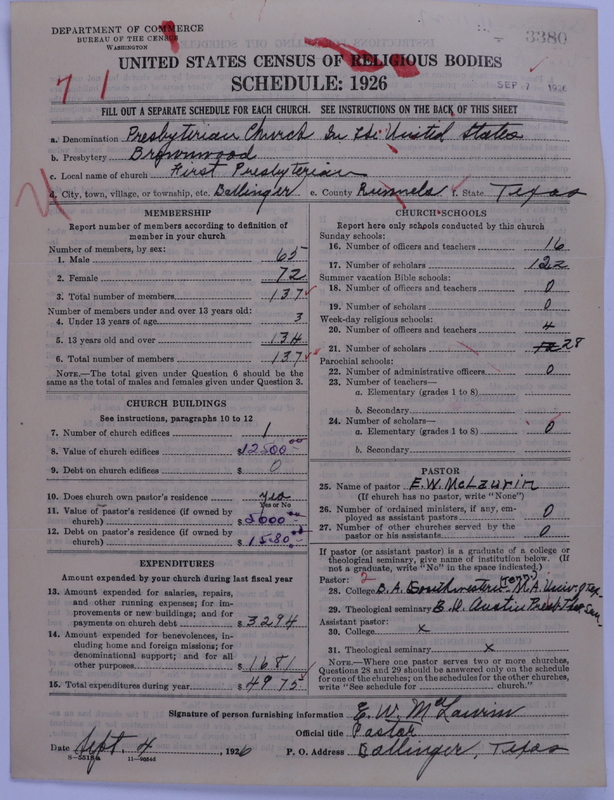 DEPARTMENT OF COMMERCE
BUREAU OF THE CENSUS
WASHINGTON
3380
UNITED STATES CENSUS OF RELIGIOUS BODIES
SCHEDULE: 1926
SEP 7 1926
71
FILL OUT A SEPARATE SCHEDULE FOR EACH CHURCH. SEE INSTRUCTIONS ON THE BACK OF THIS SHEET
a. Denomination Presbyterian Church In The United States
b. Presbytery Brownwood
c. Local name of church First Presbyterian
d. City, town, village, or township, etc. Ballinger e. County Runnels f. State Texas
MEMBERSHIP
Report number of members according to definition of
member in your church
Number of members, by sex:
1. Male 65
2. Female 72
3. Total number of members 137
Number of members under and over 13 years old:
4. Under 13 years of age 3
5. 13 years old and over 134
6. Total number of members 137
NOTE.—The total given under Question 6 should be
same as the total of males and females given under Question 3.
CHURCH BUILDINGS
See instructions, paragraphs 10 to 12
7. Number of church edifices 1
8. Value of church edifices $12500.00
9. Debt on church edifices $ 0
10. Does church own pastor's residence yes
Yes or No
11. Value of pastor's residence (if owned by
church) $ 5000.00
12. Debt on pastor's residence (if owned by
church) $ 1580.00
EXPENDITURES
Amount expended by your church during last fiscal year
13. Amount expended for salaries, repairs,
and other running expenses; for im-
provements or new buildings; and for
payments on church debt $ 3294
14. Amount expended for benevolences, in-
cluding home and foreign missions; for
denominational support; and for all
other purposes $ 1681
15. Total expenditures during year $ 4975
CHURCH SCHOOLS
Report here only schools conducted by this church
Sunday schools:
16. Number of officers and teachers 16
17. Number of scholars 122
Summer vacation Bible schools:
18. Number of officers and teachers 0
19. Number of scholars 0
Week-day religious schools:
20. Number of officers and teachers 4
21. Number of scholars 28
Parochial schools:
22. Number of administrative officers 0
23. Number of teachers—
a. Elementary (grades 1 to 8)
b. Secondary
24. Number of scholars—
a. Elementary (grades 1 to 8) 0
b. Secondary
PASTOR
25. Name of pastor E. W. McLaurin
(If church has no pastor, write "None")
26. Number of ordained ministers, if any, em-
ployed as assistant pastors 0
27. Number of other churches served by the
pastor or his assistants 0
If pastor (or assistant pastor) is a graduate of a college or
theological seminary, give name of institution below. (If
not a graduate, write "No" in the space indicated.)
Pastor: 2
28. College B.A. Southwestern M.A. Univ. of Tex.
29. Theological seminary B.D. Austin Presb. Theo Sem.
Assistant pastor:
30. College x
31. Theological seminary x
NOTE.—Where one pastor serves two or more churches,
Questions 28 and 29 should be answered only on the schedule
for one of the churches; on the schedules for the other churches,
write "See schedule for ............ church."
Signature of person furnishing information E. W. McLaurin
Official title Pastor
Date Sept. 4, 1926 P. O. Address Ballinger, Texas